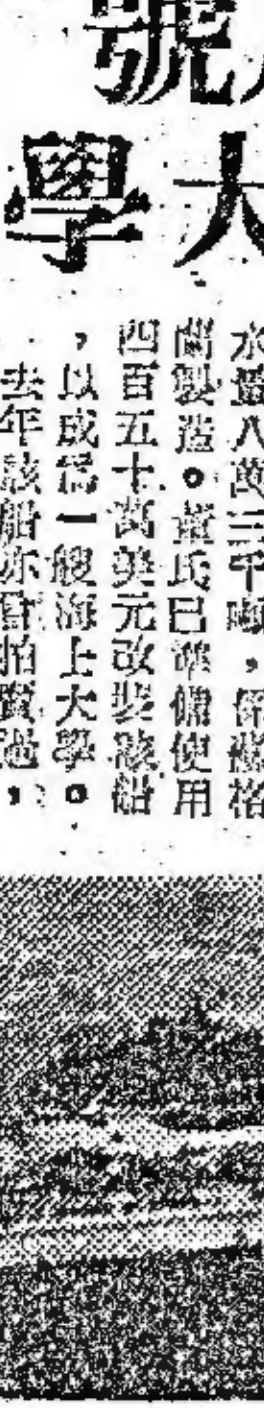 號
大
學
水量八萬三千噸，係蘇格
蘭製造。董氏已準備使用
四百五十萬美元改裝該船
，以成為一艘海上大學。
去年該船亦曾拍賣過，